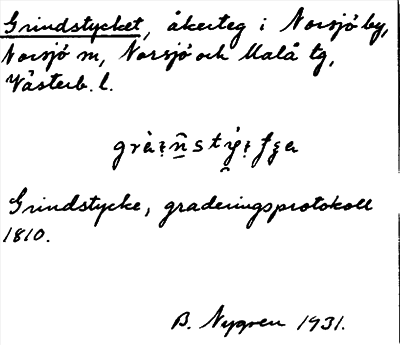 Grindstycket, åkerteg i Norsjö by,
Norsjö sn, Norsjö och Malå tg,
Västerb. l.
Grindstycke, graderingsprotokoll
1810.
B. Nygren 1931.